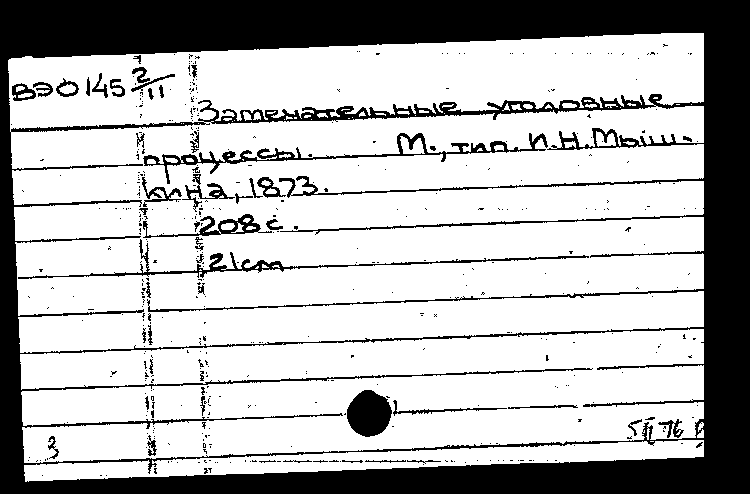 ВЭО 145 2/11
Замечательные уголовные
процессы. М., тип. И.Н.Мыш-
кина, 1873.
208 с.
21 см
3
5 II 76